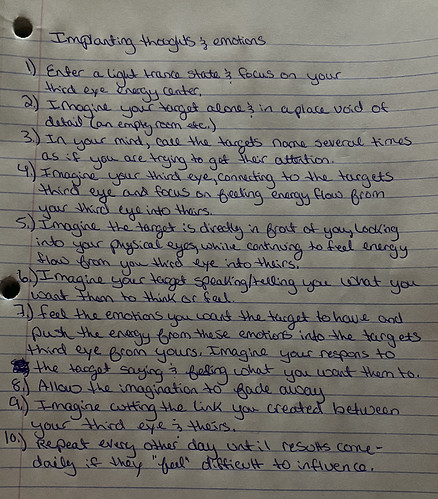 Implanting thoughts & emotions
1) Enter a light trance state & focus on your
third eye energy center.
2) Imagine your target alone & in a place void of
detail (an empty room etc.)
3.) In your mind, call the targets name several times
as if you are trying to get their attention.
4.) Imagine your third eye, connecting to the targets
third eye and focus on feeling energy flow from
your third eye into theirs.
5.) Imagine the target is directly in front of you, looking
into your physical eyes, while continuing to feel energy
flow from you third eye into theirs.
6.) Imagine your target speaking/telling you what you
want them to think or feel.
7.) Feel the emotions you want the target to have and
push the energy from these emotions into the targets
third eye from yours. Imagine your respons to
the target saying & feeling what you want them to.
8.) Allow the imagination to fade away
9.) Imagine cutting the link you created between
your third eye & theirs.
10.) Repeat every other day until results come-
daily if they "feel" difficult to influence.